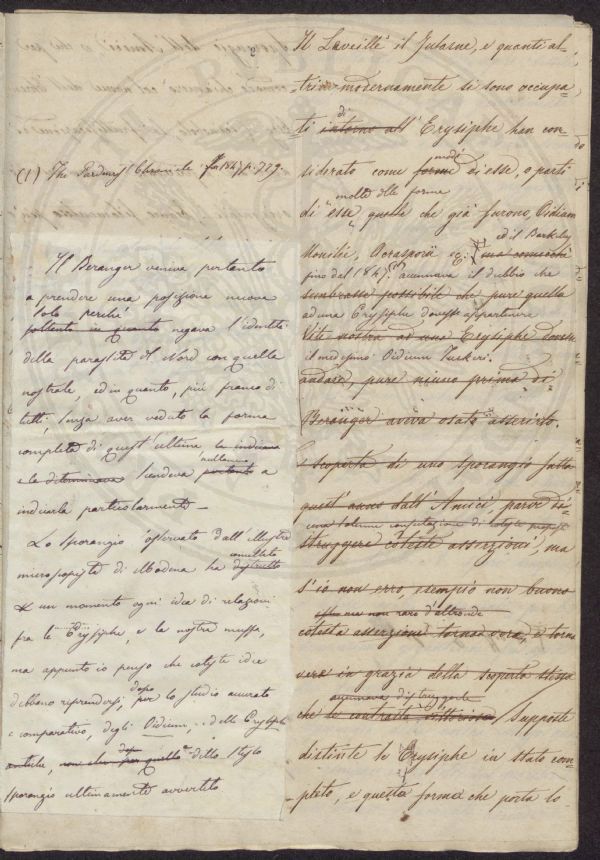 (1) The Gardners Chronicle 1847 p. 779.
Il Beranger veniva pertanto
a prendere una posizione nuova
solo perchè
soltanto in quanto negava l'identità
della parassita del Nord con quella
nostrale, ed in quanto, più franco di
tutti, senza aver veduto la forma
completa di quest'ultima la indicava
nullameno
e la determinava tendeva pertanto a
indicarla particolarmente —
Lo sporangio osservato dall'illustre
annullato
microscopista di Modena ha distrutto
un momento ogni idea di relazioni
fra le Erysiphe, e la nostra muffa,
ma appunto io penso che coteste idee
dopo
debbano riprendersi, per lo studio accurato
e comparativo, degli Oidium, delle Erysiphe
antiche, non che dello stesso
sporangio ultimamente avvertito
Il Laveillè il Tulasne, e quanti al-
tri modernamente si sono occupa-
di
ti intorno all'Erysiphe han con-
modi
siderato come forme di esse, o parti
molte delle forme
di "esse" quelle che già furono, Oidium
ed il Berkeley
Monilie, Acrosporii ec:
fino dal 1847. (1) accennava il dubbio che
sembrasse possibile che pure quella
ad una Erysiphe dovesse appartenere
Vite nostra ad una Erysiphe dovesse
il medesimo Oidium Tuckeri.
andare, pure niuno prima di
Beranger aveva osato asserirlo.
scoperta di uno sporangio fatta
quest'anno dall'Amici, parve di-
una solenne confutazione di
struggere coteste asserzioni, ma
s'io non erro, esempio non buono
ma non raro d'altronde
cotesta asserzione torna ora, e torna
vera in grazia della scoperta stessa
accennava distruggerle
che le contrasta Supposte
distinte le Erysiphe in stato com-
pleto, e questa forma che porta lo-